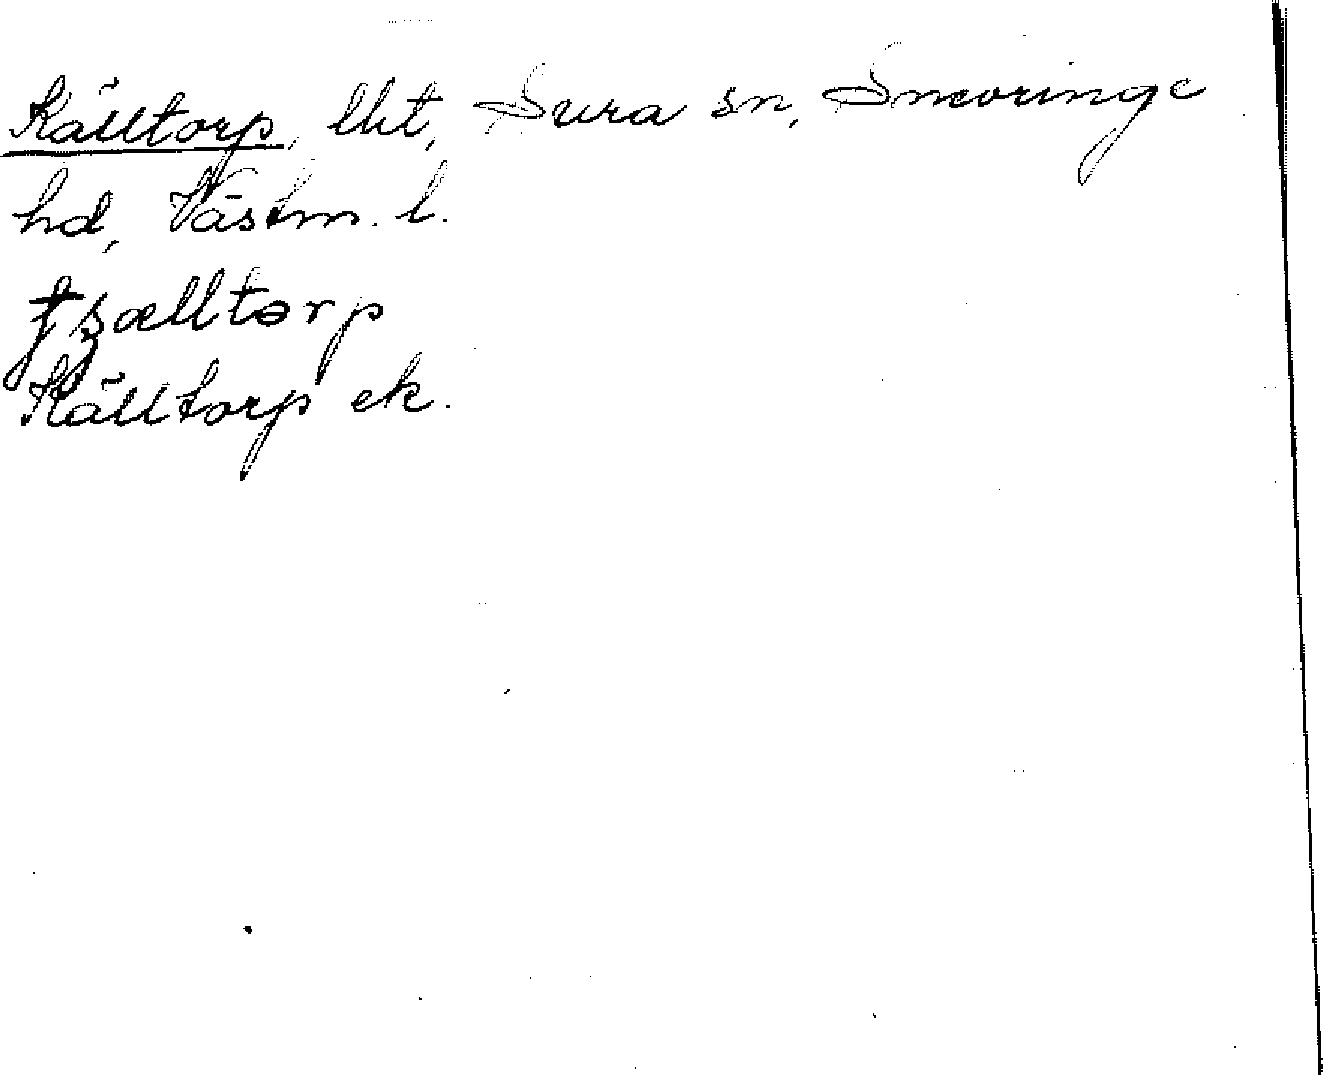 Källtorp, lht, Sura sn, Snevringe
hd, Västm. l.
tȿælltorp
Källtorp ek.